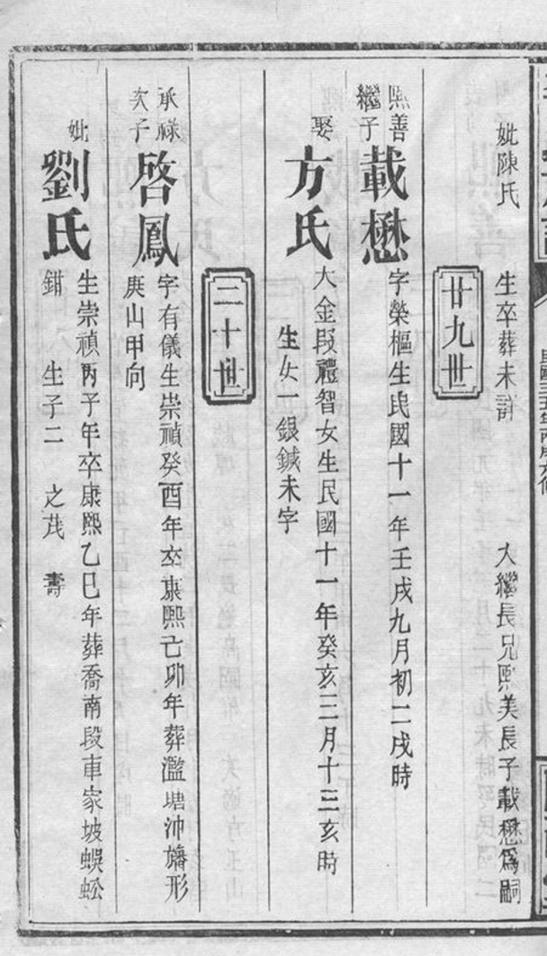 妣陳氏 生卒葬未詳 入繼長兄熙美長子載懋爲嗣
廿九世
熙善
繼子
載懋 字榮樞生民國十一年壬戌九月初二戌時
娶方氏 大金段禮智女生民國十一年癸亥三月十三亥時
生女一銀鍼未字
二十世
承祿
次子
啓鳳 字有儀生崇禎癸酉年卒康熙己卯年葬濫塘沖旛形
庚山甲向
妣劉氏 生崇禎丙子年卒康熙乙巳年葬喬南段車家坡蜈蚣
鉗 生子二 之茂 壽